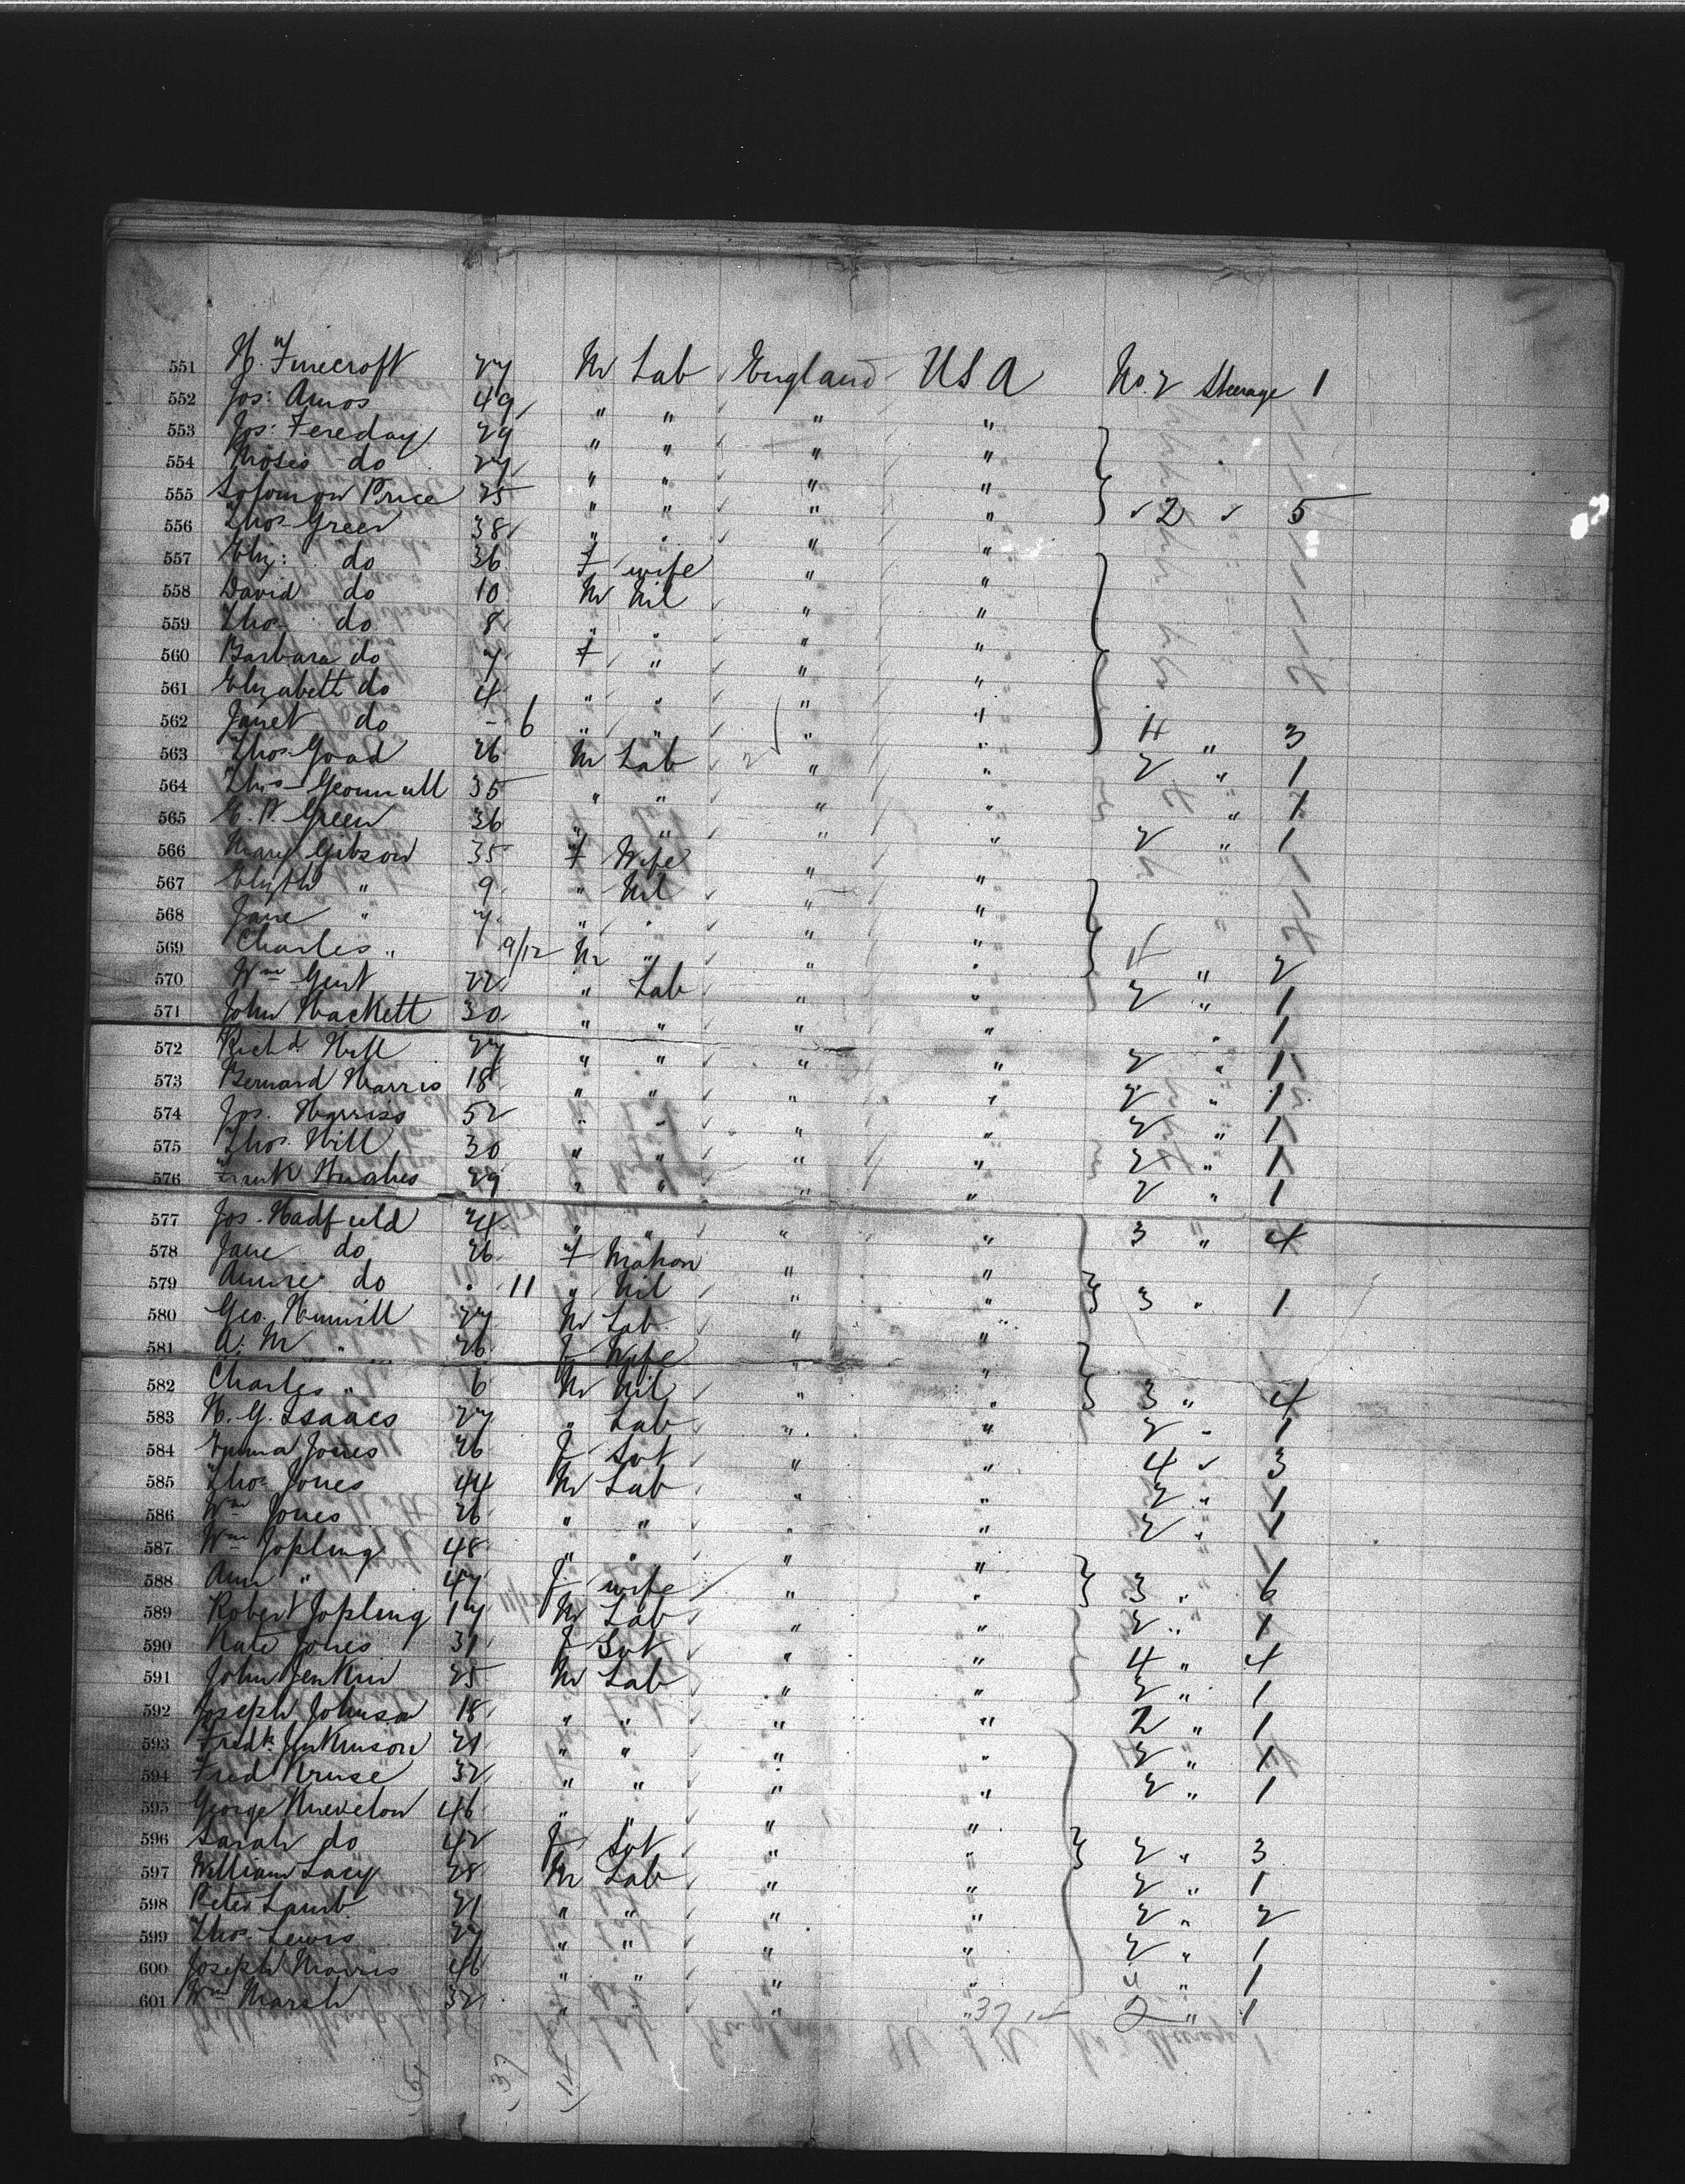 551 H. Finecroft 27 M Lab England USA No. 2 Steerage 1
552 Jos: Amos 49 " " " "
553 Jos: Fereday 29 " " " "
554 Moses do 27 " " " "
555 Solomon Price 25 " " " " " 2 " 5
556 Thos Green 38 " " " "
557 Eliz: do 36 F wife " "
558 David do 10 M Nil " "
559 Thos do 8 " " " "
560 Barbara do 7 F " " "
561 Elizabeth do 4 " " " "
562 Janet do - 6 " " " " 4 " 3
563 Thos Goad 26 M Lab " " 2 " 1
564 Thos 35 " " " " " 1
565 G. P. Green 36 " " " " 2 " 1
566 Mary Gibson 35 F Wife " "
567 Elizth " 9 " Nil " "
568 Jane " 7 " " " "
569 Charles " 9/12 M " " " 4 " 2
570 Wm Gent 22 " Lab " " 2 " 1
571 John Hackett 30 " " " " " 1
572 Richd Hill 27 " " " " 2 " 1
573 Bernard Harris 18 " " " " 2 " 1
574 Jos. Harriss 52 " " " " 2 " 1
575 Thos. Hill 30 " " " " 2 " 1
576 Frank Hughes 29 " " " " 2 " 1
577 Jos. Hadfield 24 " " " " 3 " 4
578 Jane do 26 F Matron " "
579 Annie do " 11 " Nil " " 3 " 1
580 Geo. 27 M Lab " "
581 A. M " 26 F Wife " "
582 Charles " 6 M Nil " " 3 " 4
583 H. G. Isaacs 27 " Lab " " 2 " 1
584 Emma Jones 26 F Svt " " 4 " 3
585 Thos Jones 44 M Lab " " 2 " 1
586 Wm Jones 26 " " " " 2 " 1
587 Wm Jopling 48 " " " "
588 Ann " 47 F wife " " 3 " 6
589 Robert Jopling 17 M Lab " " 2 " 1
590 Kate Jones 31 F Svt " " 4 " 4
591 John Jenkin 25 M Lab " " 2 " 1
592 Joseph Johnson 18 " " " " 2 " 1
593 Fredk Jenkinson 21 " " " " 2 " 1
594 Fred Kruse 32 " " " " 2 " 1
595 George Kneveton 46 " " " "
596 Sarah do 42 F Svt " " 2 " 3
597 William Lacy 28 M Lab " " 2 " 1
598 Peter Lamb 21 " " " " 2 " 2
599 Thos Lewis 27 " " " " 2 " 1
600 Joseph Morris 46 " " " " " 1
601 Wm Marsh 32 " " " 2 " 1